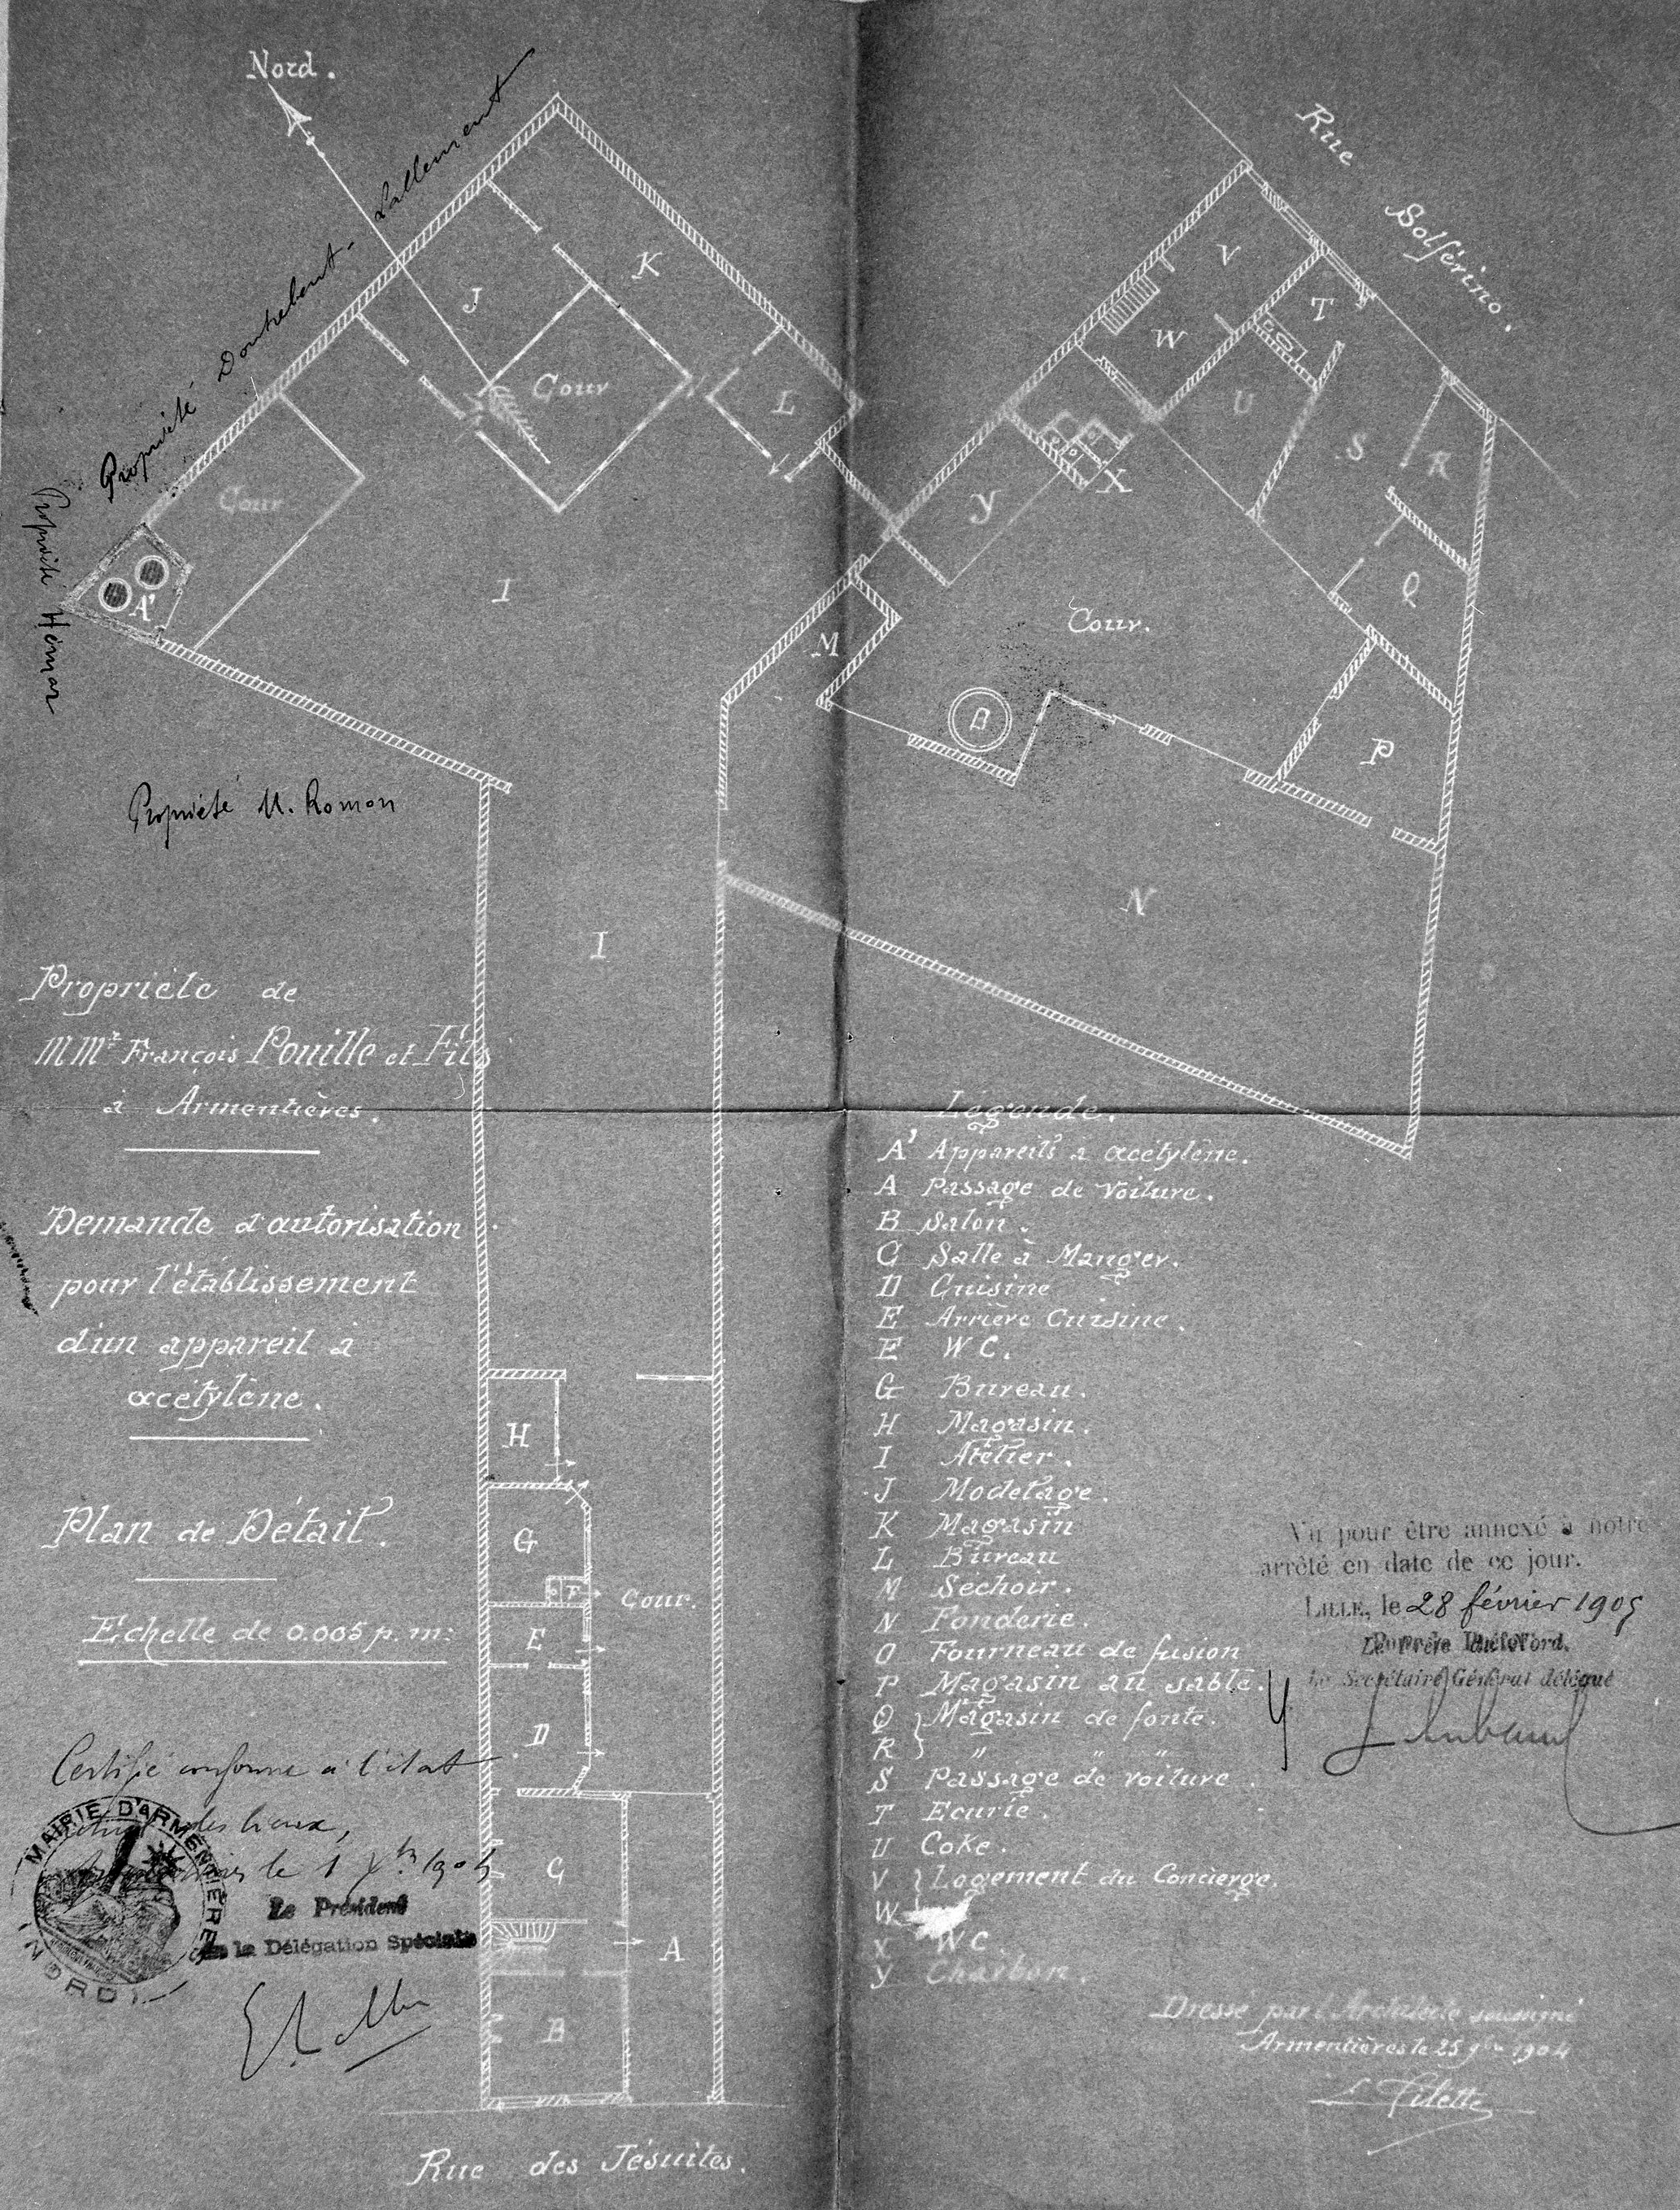 Nord.
Propriété Doutrebent-Lallement
Propriété Hémar
Propriété M. Romon
Rue Solférino.
K
J
Cour
L
Cour
A'
I
V
T
W
U
S
R
X
Y
Q
Cour.
M
O
P
N
I
Propriété de
MMrs François Pouille et Fils
à Armentières.
Demande d'autorisation
pour l'établissement
d'un appareil à
acétylène.
Plan de Détail.
Echelle de 0.005 p. m:
H
G
F
Cour.
E
D
C
A
B
Rue des Jésuites.
Légende.
A' Appareils à acétylène.
A Passage de voiture.
B Salon.
C Salle à Manger.
D Cuisine
E Arrière Cuisine.
E WC.
G Bureau.
H Magasin.
I Atelier.
J Modelage.
K Magasin
L Bureau
M Séchoir.
N Fonderie.
O Fourneau de fusion
P Magasin au sable.
Q } Magasin de fonte.
R } " " "
S Passage de voiture.
T Ecurie.
U Coke.
V } Logement du Concierge.
W
X WC.
Y Charbon.
Vu pour être annexé à notre
arrêté en date de ce jour.
LILLE, le 28 février 1905
Le Secrétaire Général délégué
Certifié conforme à l'état
des lieux,
le 1 Xbre 1904
MAIRIE D'ARMENTIÈRES
NORD
Le Président
de la Délégation Spéciale
Dressé par l'Architecte soussigné
Armentières le 25 9bre 1904